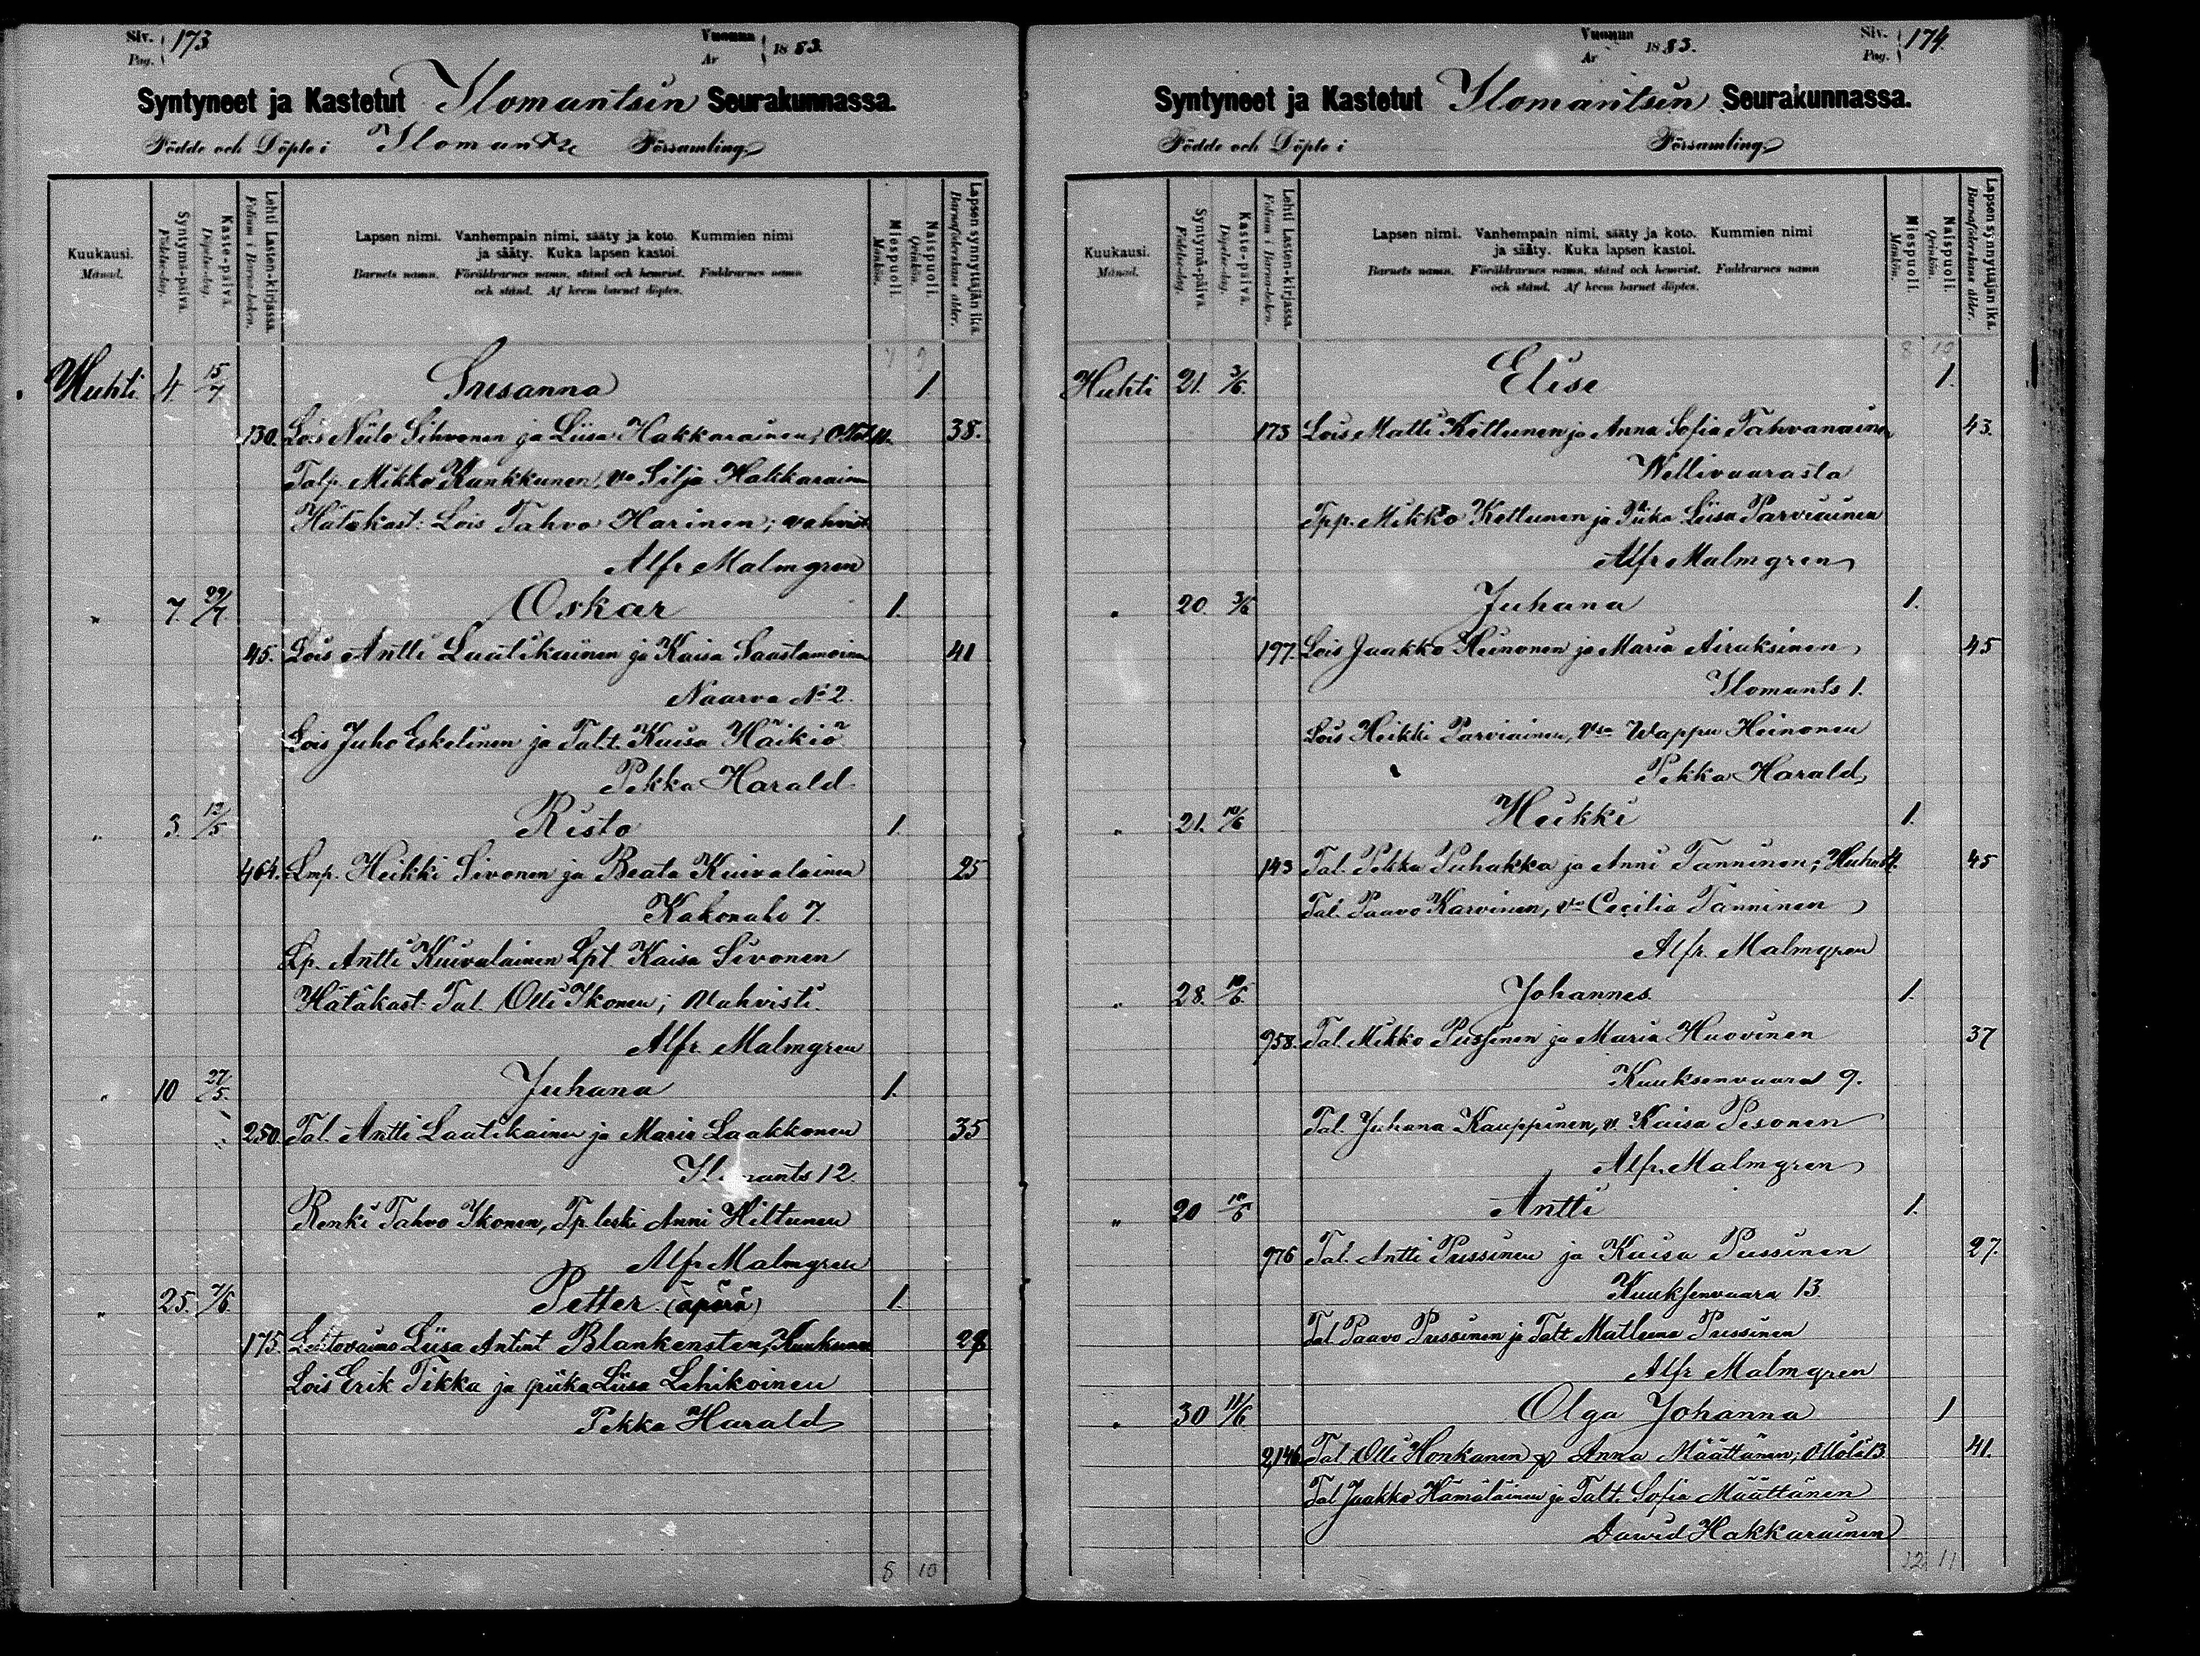 Siv. Pag. 173. Vuonna År 1883.
Syntyneet ja Kastetut Ilomantsin Seurakunnassa.
Födde och Döpte i Ilomants Församling
Kuukausi. Månad.
Syntymä-päivä. Födelse-dag.
Kaste-päivä. Döpelse-dag.
Lehti Lasten-kirjassa. Folium i Barna-boken.
Lapsen nimi. Vanhempain nimi, sääty ja koto. Kummien nimi
ja sääty. Kuka lapsen kastoi.
Barnets namn. Föräldrarnes namn, stånd och hemvist. Faddrarnes namn
och stånd. Af hvem barnet döptes.
Miespuoli. Mankön.
Naispuoli. Qvinkön.
Lapsen synnyttäjän ikä. Barnaföderskans ålder.
7 9
Huhti 4 15/7 Susanna 1.
130. Lois Niilo Sihvonen ja Liisa Hakkarainen; 38.
Talp. Mikko Kunkkunen, vo Silja Hakkarainen
Hätäkast: Lois Tahvo Harinen; vahvist.
Alfr Malmgren
" 7. 29/7. Oskar 1.
45. Lois Antti Laatikainen ja Kaisa Saastamoinen 41
Naarva No 2.
Lois Juho Eskelinen ja Talt. Kaisa Häikiö
Pekka Harald.
" 3. 12/5 Risto 1.
464. Lmp. Heikki Sivonen ja Beata Kuivalainen 25
Kakonaho 7.
Lp. Antti Kuivalainen Lpt Kaisa Sivonen
Hätäkast: Tal. Olli Ikonen; Vahvisti.
Alfr. Malmgren
" 10 27/5. Juhana 1.
250. Tal. Antti Laatikainen ja Maria Laakkonen 35
Ilomants 12.
Renki Tahvo Ikonen, Tp. leski Anni Hiltunen
Alfr Malmgren
" 25. 7/6. Petter (äpärä) 1.
175. Lestovaimo Liisa Antint Blankensten,
Lois Erik Tikka ja piika Liisa Lehikoinen
Pekka Harald
8 10
Vuonna År 1883. Siv. Pag. 174.
Syntyneet ja Kastetut Ilomantsin Seurakunnassa.
Födde och Döpte i Församling
Kuukausi. Månad.
Syntymä-päivä Födelse-dag.
Kaste-päivä. Döpelse-dag.
Lehti Lasten-kirjassa. Folium i Barna-boken.
Lapsen nimi. Vanhempain nimi, sääty ja koto. Kummien nimi
ja sääty. Kuka lapsen kastoi.
Barnets namn. Föräldrarnes namn, stånd och hemvist. Faddrarnes namn
och stånd. Af hvem barnet döptes.
Miespuoli. Mankön.
Naispuoli. Qvinkön.
Lapsen synnyttäjän ikä. Barnaföderskans ålder.
8 10
Huhti 21. 3/6. Elise 1.
173 Lois Matti Kettunen ja Anna Sofia Tahvanainen 43.
Wellivaarasta
Tpp. Mikko Kettunen ja Piika Liisa Parviainen
Alfr Malmgren
" 20. 3/6 Juhana 1.
197. Lois Jaakko Heinonen ja Maria Airaksinen 45
Ilomants 1.
Lois Heikki Parviainen, Vso Wappu Heinonen
Pekka Harald,
" 21. 10/6 Heikki 1.
143 Tal. Pekka Puhakka ja Anni Tanninen; 45
Tal. Paavo Karvinen, Vo Cecilia Tanninen
Alfr. Malmgren
" 28. 10/6. Johannes. 1.
958. Tal. Mikko Pussinen ja Maria Huovinen 37
Kuuksenvaara 9.
Tal. Juhana Kauppinen, v. Kaisa Pesonen
Alfr. Malmgren
" 20 10/6 Antti 1.
976 Tal. Antti Pussinen ja Kaisa Pussinen 27.
Kuuksenvaara 13.
Tal Paavo Pussinen ja Talt Matleena Pussinen
Alfr Malmgren
" 30 11/6 Olga Johanna 1
2,146 Tal Olli Honkanen ja Anna Määttänen; Ottola 13. 41.
Tal Jaakko Hämäläinen ja Talt. Sofia Määttänen
Dawid Hakkarainen
12 11